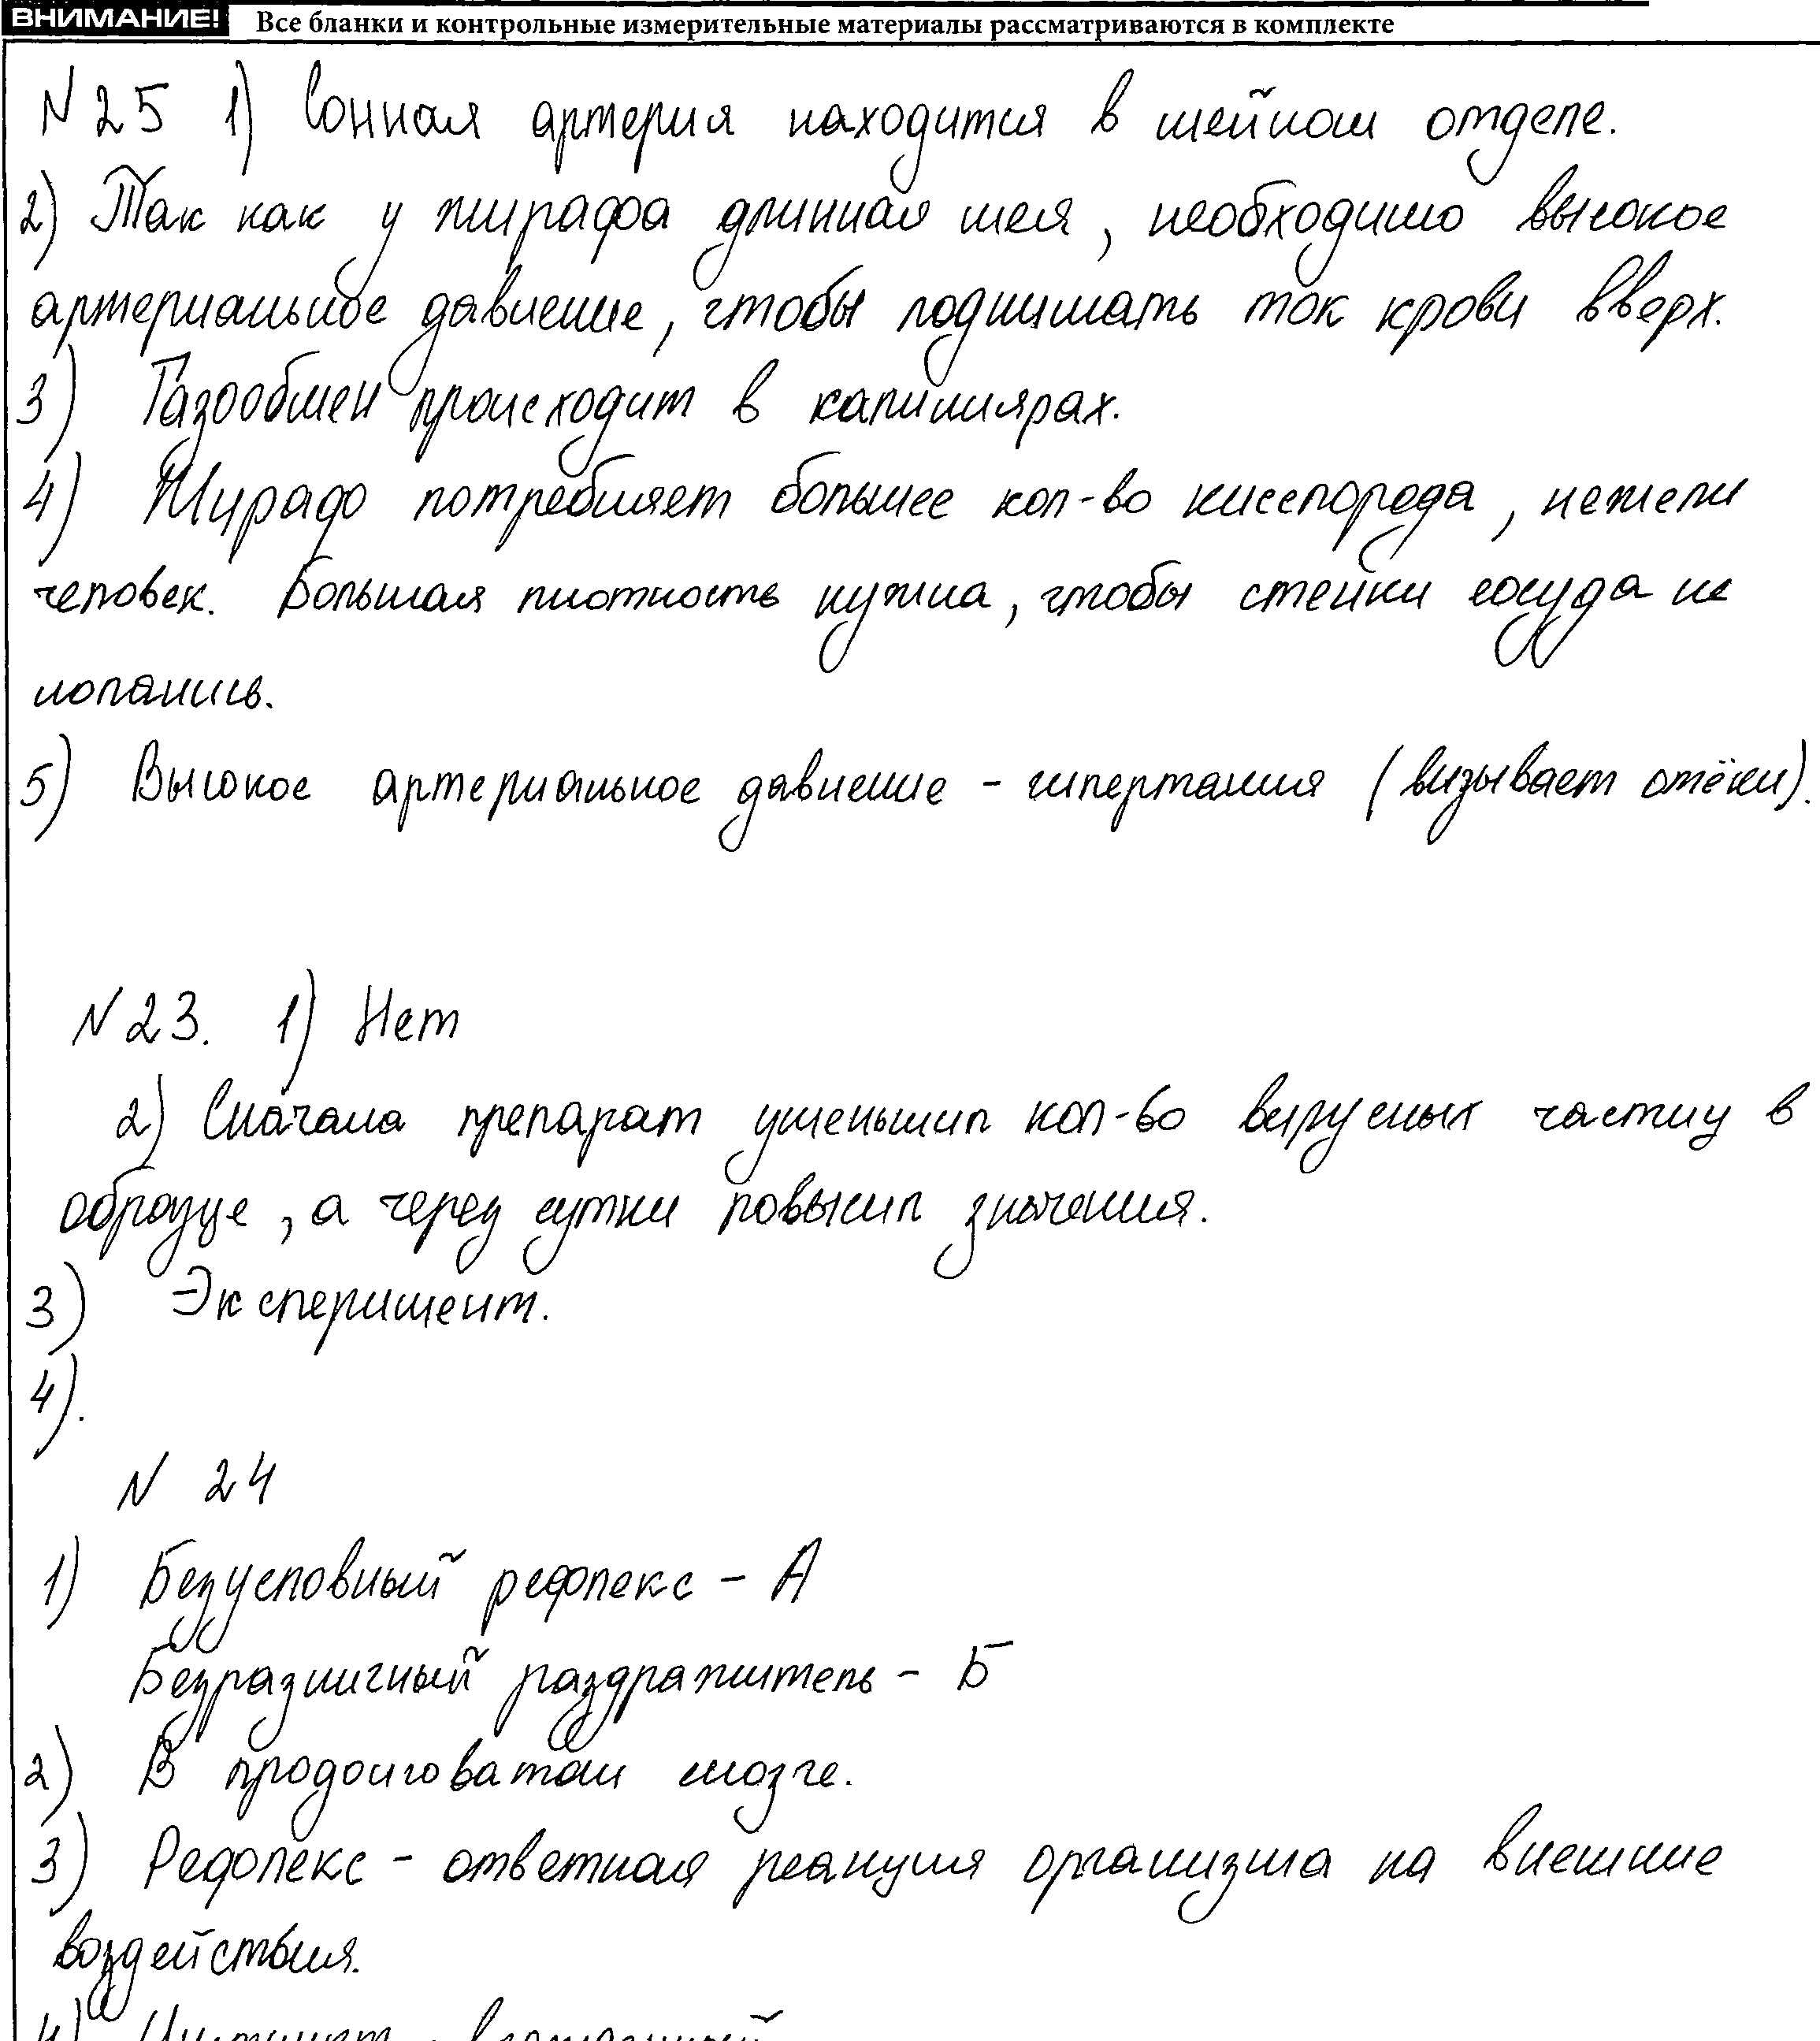 ВНИМАНИЕ! Все бланки и контрольные измерительные материалы рассматриваются в комплекте
№25 1) Сонная артерия находится в шейном отделе.
2) Так как у жирафа длинная шея, необходимо высокое
артериальное давление, чтобы поднимать ток крови вверх.
3) Газообмен происходит в капиллярах.
4) Жираф потребляет большее кол-во кисслорода, нежели
человек. Большая плотность нужна, чтобы стенки сосуда не
лопались.
5) Высокое артериальное давление - гипертания (визывает отёки).
№23. 1) Нет
2) Сначала препарат уменьшил кол-во вирусных частиц в
образце, а через сутки повысил значения.
3) Эксперимент.
4).
№ 24
1) Безусловный рефлекс - А
Безразличный раздражитель - Б
2) В продолговатом мозге.
3) Рефлекс - ответная реакция организма на внешние
воздействия.
4)